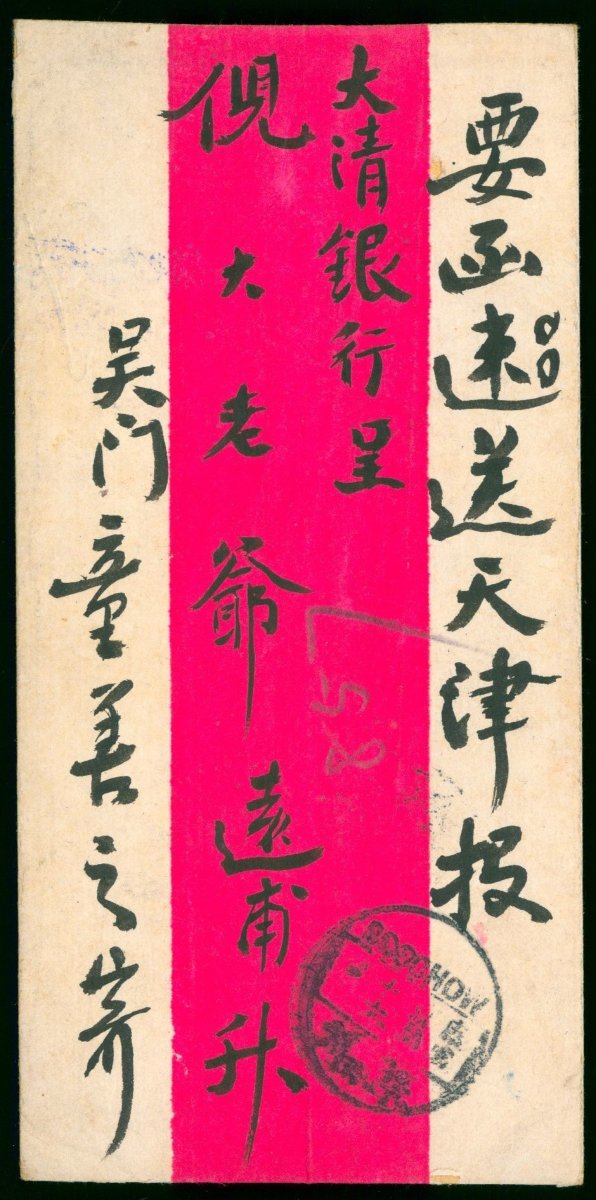 要函速送天津投
大清銀行呈
倪大老爺遠甫升
吴門童善之寄
SOOCHOW